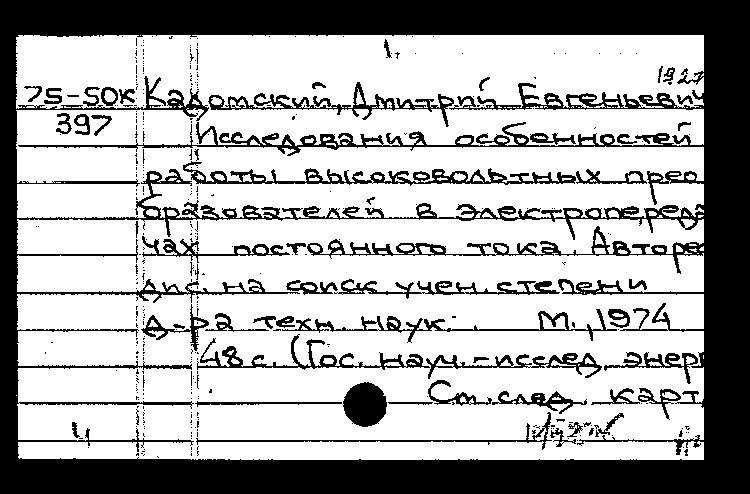 1.
1927
75-50к Кадомский, Дмитрий Евгеньевич
397 Исследования особенностей
работы высоковольтных прео
бразователей в электропереда
чах постоянного тока. Авторе
дис. на соиск. учен. степени
д-ра техн. наук. М., 1974
48 с. (Гос. науч.-исслед. энер
См. след. карт.
4